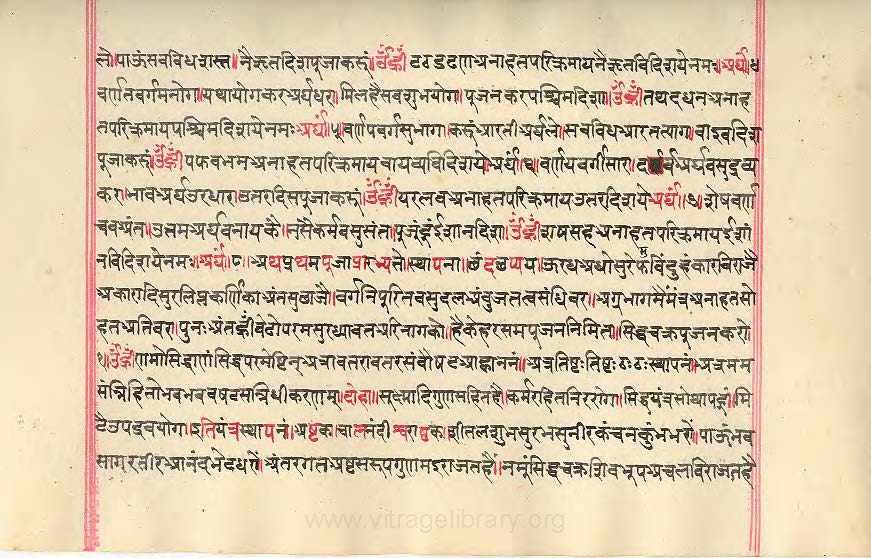 त्तो॥पाऊंसवविधशस्त॥नैऋतदिशपूजाकरुं॥उँह्रीं टठडढणअनाहतपरिक्रमायनैऋतविदिशयेनमः॥अर्घं॥४
वर्णतवर्गमनोग॥यथायोगकरअर्घधरा॥मिलहैसवशुभयोग॥पूजनकरपश्चिमदिशा॥उँह्रीं तथदधनअनाह
तपरिक्रमायपश्चिमदिशयेनमः॥अर्घं॥५॥वर्णपवर्गसुभाग॥करुंआरतीअर्घले॥सवविधआरतत्याग॥वाइवदिश
पूजाकरुं॥उँह्रीं पफवभमअनाहतपरिक्रमायवायव्यविदिशये॥अर्घं॥६॥वर्णयवर्गीसार॥ अर्घवसुद्रव्य
कर॥भावअर्घउरधार॥उतरदिसपूजाकरुं॥उँह्रीं यरलवअनाहतपरिक्रमायउत्तरदिशये॥अर्घं॥७॥शेषवर्ण
चवअंत॥उत्तमअर्घवनायकै॥नसैकर्मवसुसंत॥पूजूंहूंईशानदिश॥उँह्रीं शषसहअनाहतपरिक्रमायईशां
नविदिशयेनमः॥अर्घं॥८॥अथप्रथमपूजाप्रारभ्यते॥स्थापना॥छंदछप्पय॥ऊरधअधोसुरेफविंदुहंकारविराजै
अकारादिसुरलिप्तकर्णिकाअंतसुछाजै॥वर्गनिपूरितवसुदलअंवुजतत्वसंधिवर॥अग्रभागमैंमंत्रअनाहतसो
हतअतिवर॥पुनःअंतह्रींवेढोपरमसुरध्यावतअरिनागको॥हैकेहरसमपूजननिमित॥सिद्धचक्रपूजनकरो
१॥उँह्रींणमोसिद्धाणंसिद्धपरमेष्टिन्अत्रावतरावतरसंवौषटआह्वाननं॥अत्रतिष्टःतिष्टःठःठःस्थापनं॥अत्रमम
संन्निहितोभवभववषटसन्निधीकरणम्॥दोहा॥सूक्ष्मादिगुणसहितहै॥कर्मरहितनिररोग॥सिद्धयंत्रसोथापहूं॥मि
टैउपद्रवयोग॥इतियंत्रस्थापनं॥अष्टकाचालनंदीश्वराष्टक॥शीतलशुभसुरभसुनीरकंचनकुंभभरों॥पाऊंभव
सागरतीरआनंदभेटधरों॥अंतरगतअष्टसरूपगुणमइराजतहैं॥नमूंसिद्धचक्रशिवभूपअचलविराजतहै
www.vitragelibrary.org